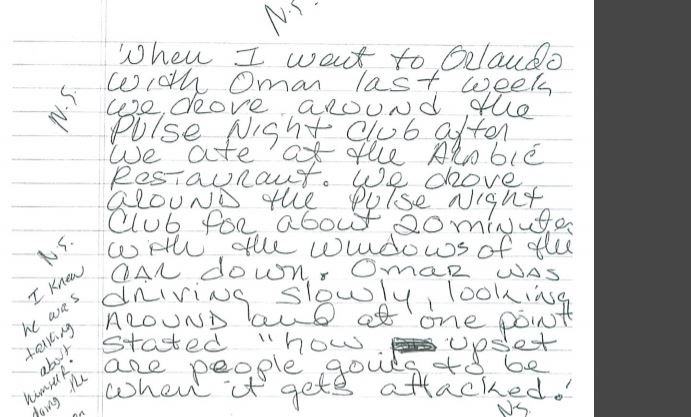 N.S.
When I went to Orlando
with Omar last week
we drove around the
N.S.
Pulse Night Club after
we ate at the Arabic
Restaurant. We drove
around the Pulse Night
Club for about 20 minutes
N.S.
with the windows of the
car down. Omar was
I knew
driving slowly, looking
he was
around and at one point
talking
stated "how upset
about
are people going to be
himself
when it gets attacked."
doing the
N.S.